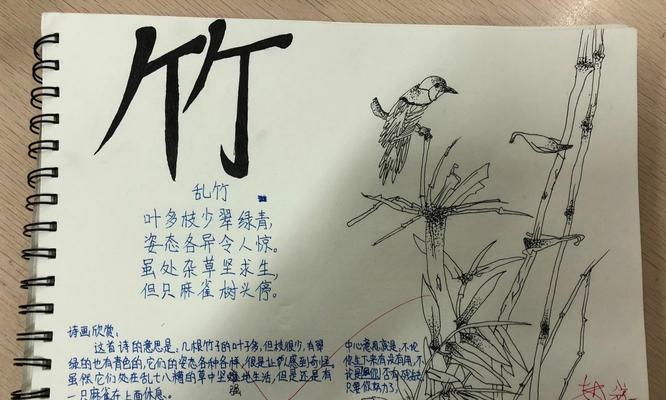 竹
乱竹
叶多枝少翠绿青，
姿态各异令人惊。
虽处杂草坚求生，
但只麻雀树头停。
诗画欣赏：
这首诗的意思是：几根竹子的叶子多，但枝很少，有翠
绿的也有青色的，它们的姿态各种各样，很是让人感到奇怪。
虽然它们处在乱七八糟的草中坚强地生活，但是还是有
一只麻雀在上面休息。
中心意思就是，不论
你生下来有没有用，不
论是
否有
只要你努力了，